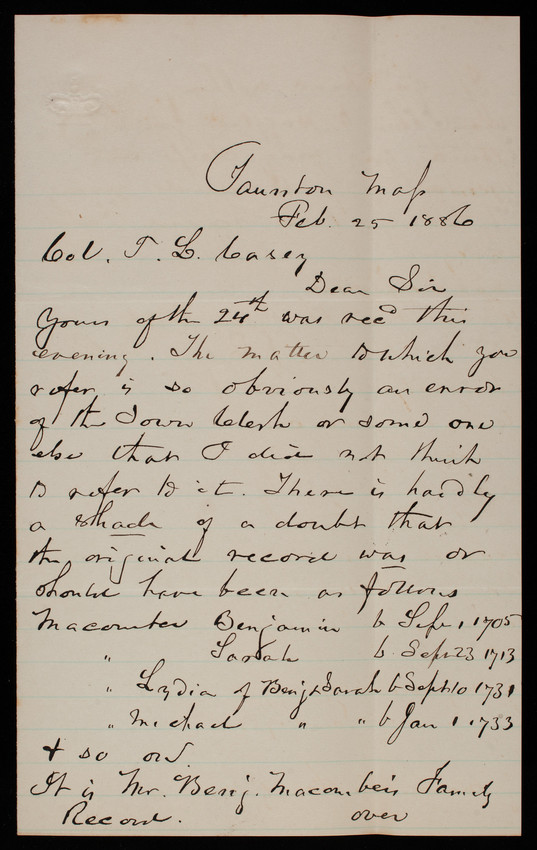 Taunton Mass
Feb. 25 1886
Col. T. L. Casey
Dear Sir
Yours of the 24th was recd this
evening. The matter to which you
refer is so obviously an error
of the Town Clerk or some one
else that I did not think
to refer to it. There is hardly
a shade of a doubt that
the original record was or
should have been as follows
Macomber Benjamin b Sept 1 1705
" Sarah b. Sept 23 1713
" Lydia of Benj & Sarah b Sept 10 1731
" Michael " " b Jan 1 1733
& so on.
It is Mr. Benj. Macomber's Family
Record. over